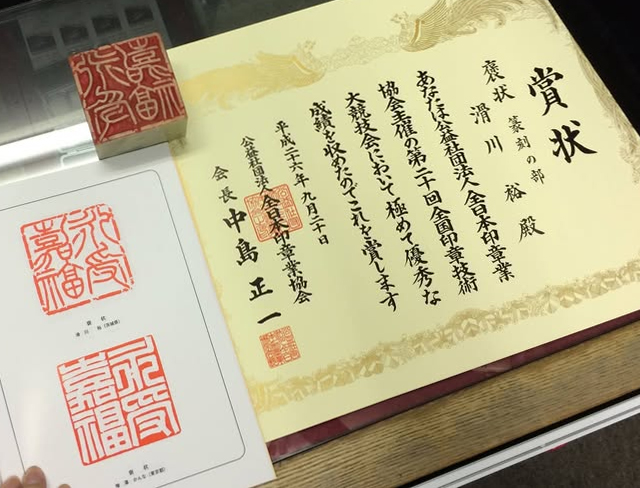 賞状
褒状 篆刻の部
滑川 裕 殿
あなたは公益社団法人全日本印章業
協会主催の第二十回全国印章技術
大競技会において極めて優秀な
成績を収めたのでこれを賞します
平成二十六年九月二十日
公益社団法人全日本印章業協会
会長 中島正一
永受嘉福
褒状
滑川 裕(茨城県)
永受嘉福
褒状